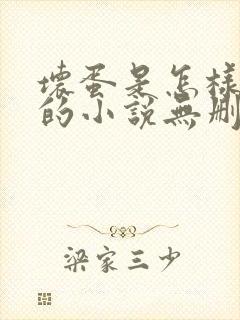 壞蛋是怎樣
的小說無刪
梁家三少